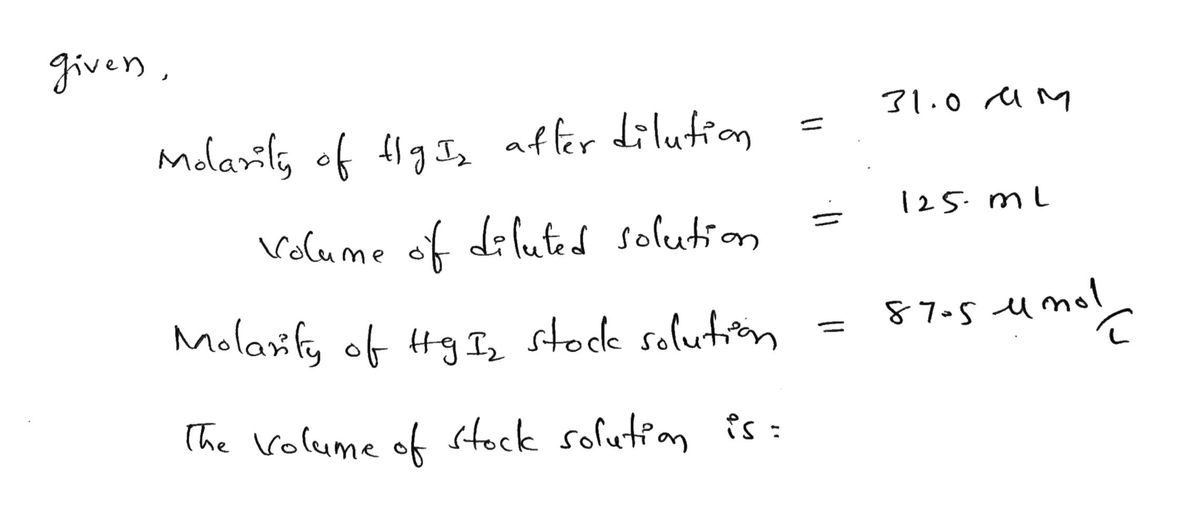 given,
Molarity of HgI₂ after dilution = 31.0 μM
Volume of diluted solution = 125. mL
Molarity of HgI₂ stock solution = 87.5 μmol/L
The volume of stock solution is :